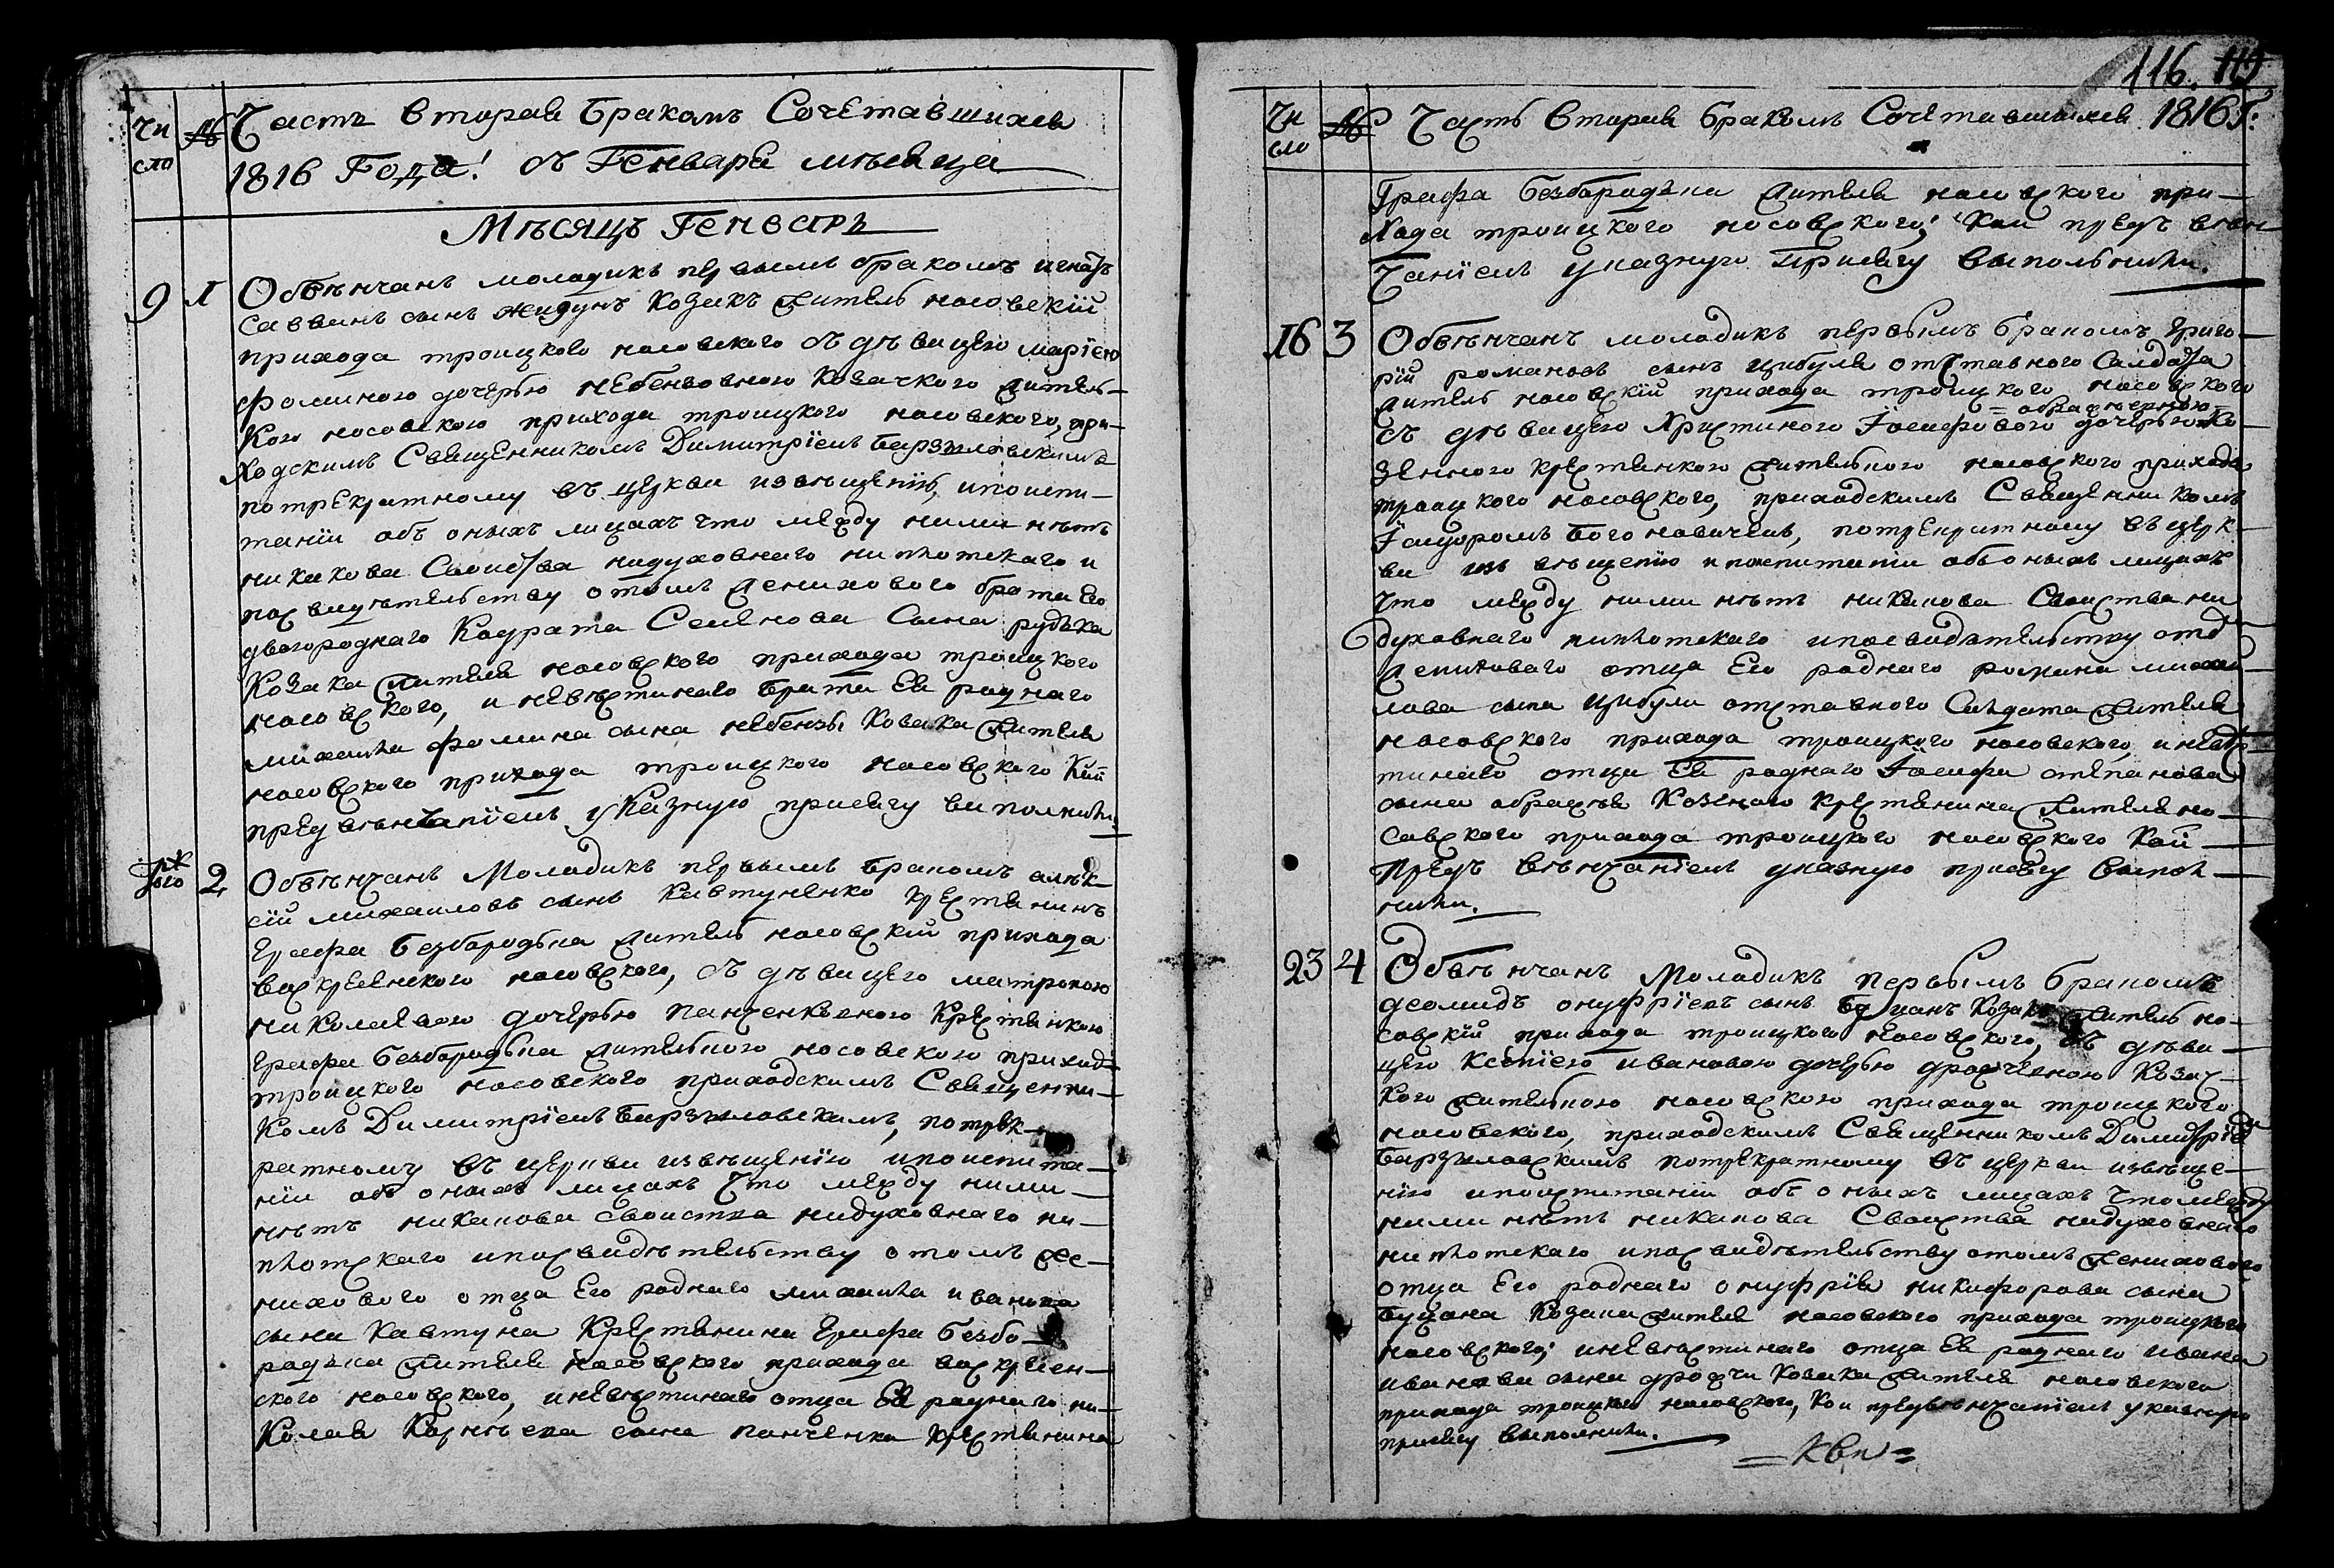 Чи
сло
№
Часть вторая бракомъ Сочетавшихся
1816 Года! съ Генваря мѣсяца
Мѣсяцъ Генварь
9 1 Обвѣнчанъ молодикъ первымъ бракомъ игнатъ
саввинъ сынъ жидунъ Козакъ житель носовскій
прихода троицкого носовского съ дѣвицею маріею
фоминою дочерью небензовною козачкою житель-
кою носовскою прихода троицкого носовского, при-
ходскимъ Священникомъ Димитріемъ Барзиловскимъ
потрекратному въ церкви извѣщенію, ипоиспи-
таніи объ оныхъ лицахъ что между ними нѣтъ
никакова Своиства нидуховнаго ниплотскаго и
посвидѣтельству отомъ женихового брата его
двогороднаго Кодрата Семенова Сына рудька
Козака жителя носовского прихода троицкого
носовского, и невѣстинаго брата Ея роднаго
михаила фомина сына небензы Козака жителя
носовского прихода троицкого носовского Кои
предвѣнчаніемъ указную присягу виполнили.
того ж 2 Обвѣнчанъ Молодикъ первымъ бракомъ алек-
сій михаиловъ сынъ Кавтуненко крестянинъ
Графа безбородька житель носовскій прихода
воскресенского носовского, съ дѣвицею матроною
николаевою дочерью панченковною Крестянкою
Графа безбородька жителькою носовскою прихода
троицкого носовского приходскимъ Священни-
комъ Димитріемъ Барзиловскимъ, потрек-
ратному въ церкви извѣщенію ипоиспита-
ніи объ оныхъ лицахъ что между ними
нѣтъ никакова своиства нидуховнаго ни-
плотскаго ипосвидѣтельству отомъ же-
нихового отца Его роднаго михаила иванова
сына Кавтуна Крестянина Графа безбо-
родька жителя носовского прихода воскресен-
ского носовского, иневѣстинаго отца Ея роднаго ни-
колая Корнѣева сына панченка крестянина
116.
Чи
сло
№
Часть вторая бракомъ Сочетавшихся 1816 Г:
Графа безбородька жителя носовского при-
хода троицкого носовского; Кои предъ вѣн-
чаніемъ указную присягу выполънили.
16 3 Обвѣнчанъ молодикъ первымъ бракомъ Григо-
рій романовъ сынъ цибуля отставного Салдата
житель носовскій прихода троицкого носовского
съ дѣвицею Христиною Іосифовою дочерью Ка-
зенною крестянкою жителькою носовскою прихода
троицкого носовского, приходскимъ Священникомъ
Богоновичемъ, потрекратному въ церк-
ви извѣщенію ипоиспитаніи объоныхъ лицахъ
что между ними нѣтъ никакова Своиства ни
духовнаго ниплотскаго ипосвидѣтельству отомъ
женихового отца Его роднаго романа михаи-
лова сына цибули отставного Салдата жителя
носовского прихода троицкого носовского, иневѣс-
тинаго отца Ея роднаго Іосифа степанова
сына Козенного крестянина жителя но-
совского прихода троицкого носовского Кои
предъ вѣнчаніемъ указную присягу выпол-
нили.
23 4 Обвѣнчанъ Молодикъ первымъ бракомъ
деомидъ онуфріевъ сынъ Буцанъ Козакъ житель но-
совскій прихода троицкого носовского, съ дѣви-
цею Ксеніею ивановою дочерью козач-
кою жителькою носовскою прихода троицкого
носовского, приходскимъ Священникомъ Димитріемъ
Барзиловскимъ потрекратному въ церкви извѣще-
нію ипоиспитаніи объ оныхъ лицахъ что между
ними нѣтъ никакова Своиства нидуховнаго
ниплотскаго ипосвидѣтельству отомъ женихового
отца Его роднаго онуфрія никифорова сына
Буцана Козака жителя носовского прихода троицкого
носовского; иневѣстинаго отца Ея роднаго ивана
иванова сына Козака жителя носовского
прихода троицкого носовского, Кои предвѣнчаніемъ указную
присягу выполнили.